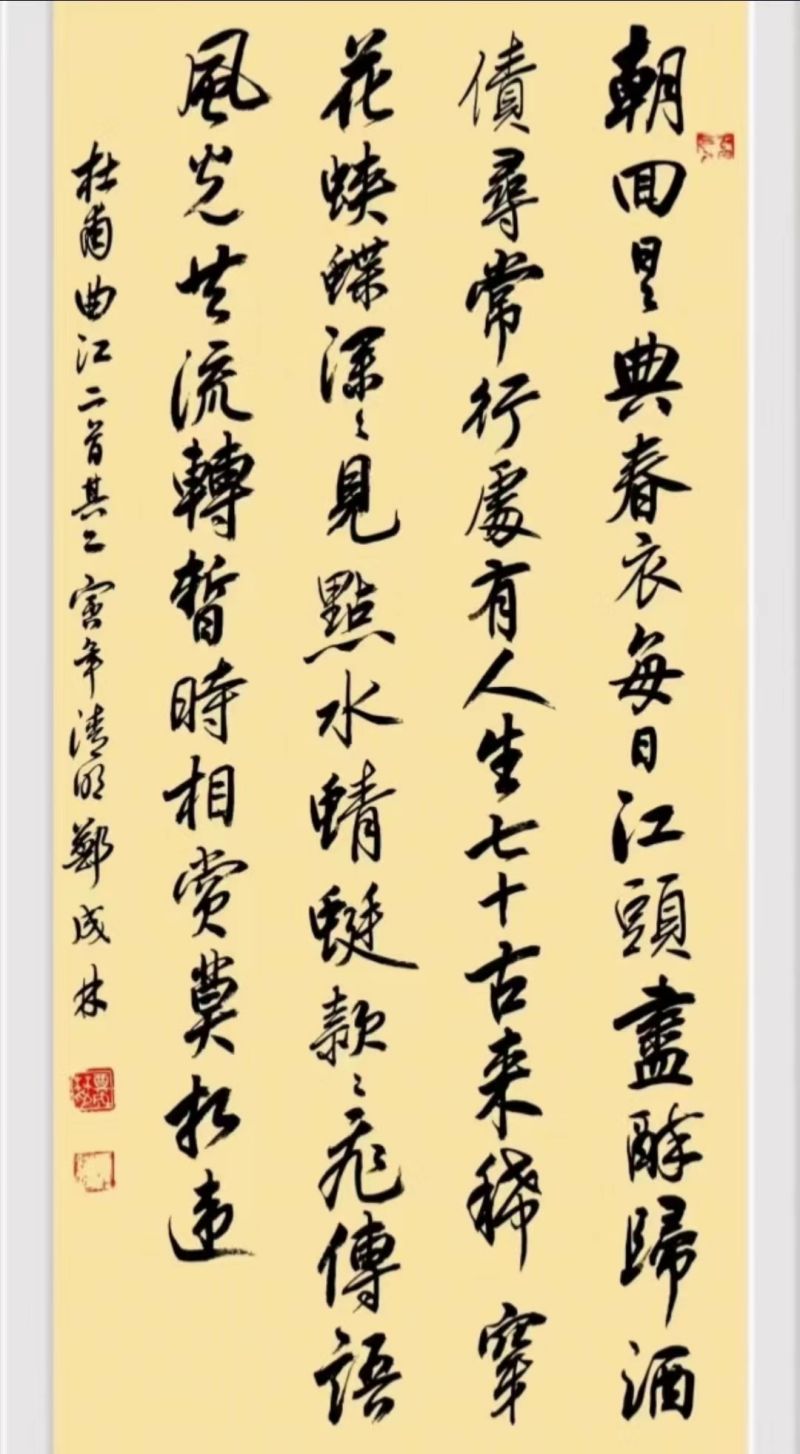 朝回日日典春衣每日江頭盡醉歸酒
債尋常行處有人生七十古來稀穿
花蛺蝶深々見點水蜻蜓款々飛傳語
風光共流轉暫時相賞莫相違
杜甫曲江二首其二寅年清明鄭成林